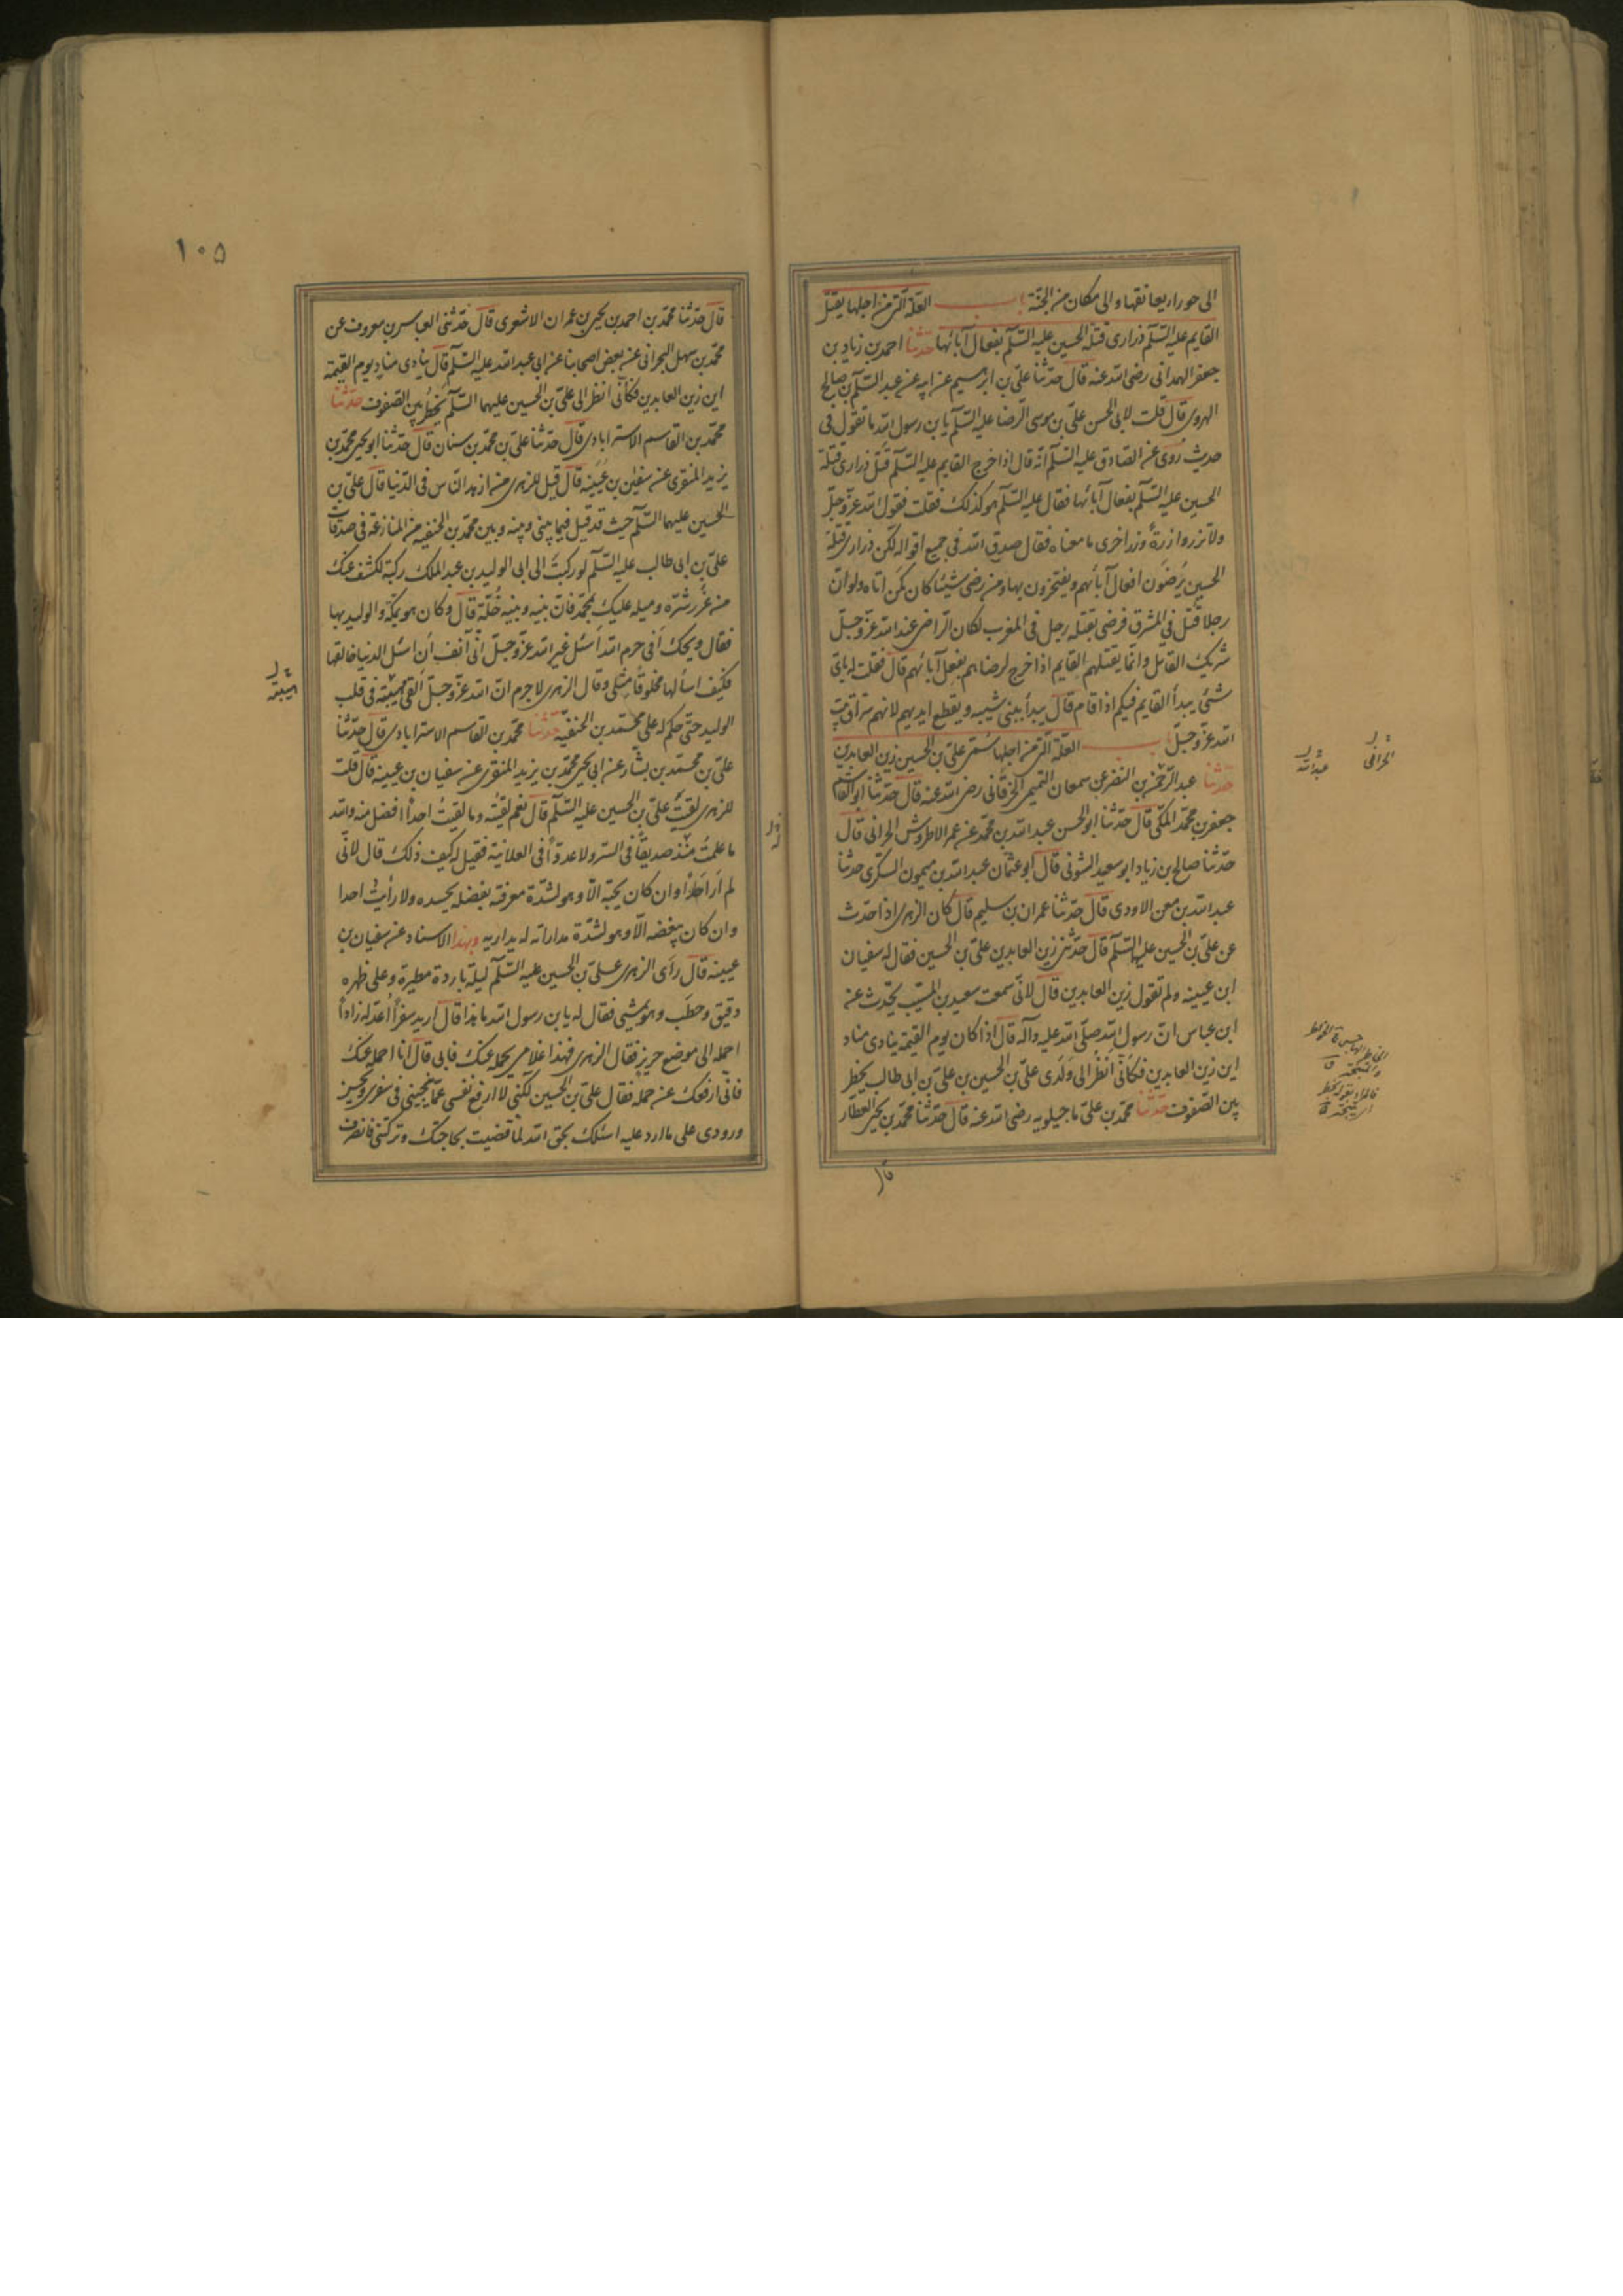 الى حوراء يعانقها والى مكان من الجنة باب العلة التى من اجلها يقتل
القايم عليه السلم ذرارى قتلة الحسين عليه السلم بفعال آبائها حدثنا احمد بن زياد بن
جعفر الهمدانى رضى الله عنه قال حدثنا على بن ابرهيم عن ابيه عن عبد السلم بن صالح
الهروى قال قلت لابى الحسن على بن موسى الرضا عليه السلم يا بن رسول الله ما تقول فى
حديث روى عن الصادق عليه السلم انه قال اذا خرج القايم عليه السلم قتل ذرارى قتلة
الحسين عليه السلم بفعال آبائها فقال عليه السلم هو كذلك فقلت فقول الله عز وجل
ولا تزر وازرة وزر اخرى ما معناه فقال صدق الله فى جميع اقواله لكن ذرارى قتلة
الحسين يرضون افعال آبائهم ويفتخرون بها ومن رضى شيئا كان كمن اتاه ولو ان
رجلا قتل فى المشرق فرضى بقتله رجل فى المغرب لكان الراضى عند الله عز وجل
شريك القاتل وانما يقتلهم القايم اذا خرج لرضاهم بفعل آبائهم قال فقلت له باى
شئ يبدأ القايم فيكم اذا قام قال يبدأ ببنى شيبه ويقطع ايديهم لانهم سراق بيت
الله عز وجل باب العلة التى من اجلها سمى على بن الحسين زين العابدين
حدثنا عبد الله بن النضر بن سمعان التميمى الخرقانى رضى الله عنه قال حدثنا ابو القاسم
جعفر بن محمد المكى قال حدثنا ابو الحسن عبد الله بن محمد عن عمر الاطروش الحرانى قال
حدثنا صالح بن زياد ابو سعيد الشونى قال ابو عثمان عبد الله بن ميمون السكرى حدثنا
عبد الله بن معن الاودى قال حدثنا عمران بن سليم قال كان الزهرى اذا حدث
عن على بن الحسين عليهما السلم قال حدثنى زين العابدين على بن الحسين فقال له سفيان
ابن عيينه ولم تقول زين العابدين قال لانى سمعت سعيد بن المسيب يحدث عنه
ابن عباس ان رسول الله صلى الله عليه وآله قال اذا كان يوم القيمة ينادى مناد
اين زين العابدين فكانى انظر الى ولدى على بن الحسين بن على بن ابى طالب يخطر
بين الصفوف حدثنا محمد بن على ماجيلويه رضى الله عنه قال حدثنا محمد بن يحيى العطار
قال
عبد الله
١٠٥
قال حدثنا محمد بن احمد بن يحيى بن عمران الاشعرى قال حدثنى العباس بن معروف عن
محمد بن سهل البحرانى عن بعض اصحابنا عن ابى عبد الله عليه السلم قال ينادى مناد يوم القيمة
اين زين العابدين فكانى انظر الى على بن الحسين عليهما السلم يخطر بين الصفوف حدثنا
محمد بن القاسم الاسترابادى قال حدثنا على بن محمد بن سنان قال حدثنا ابو يحيى محمد بن
يزيد المنقرى عن سفين بن عيينه قال قيل للزهرى من ازهد الناس فى الدنيا قال على بن
الحسين عليهما السلم حيث قد قيل فيما بينى وبينه وبين محمد بن الحنفيه من المنازعة فى صدقات
على بن ابى طالب عليه السلم لو ركبت الى ابى الوليد بن عبد الملك ركبة لكشف عنك
من غرر شره وميله عليك بمحمد فان بينه وبينه خلة قال وكان هو بمكة والوليد بها
فقال ويحك أفى حرم الله أسئل غير الله عز وجل انى آنف أن اسئل الدنيا خالقها
فكيف اسألها مخلوقا مثلى وقال الزهرى لا جرم ان الله عز وجل القى هيبته فى قلب
الوليد حتى حكم له على محمد بن الحنفيه حدثنا محمد بن القاسم الاسترابادى قال حدثنا
على بن محمد بن بشار عن ابى يحيى محمد بن يزيد المنقرى عن سفيان بن عيينه قال قلت
للزهرى لقيت على بن الحسين عليه السلم قال نعم لقيته وما لقيت احدا افضل منه والله
ما علمت منذ صديقا فى السر ولا عدوا فى العلانية فقيل له كيف ذلك قال لانى
لم ار احدا وان كان يحبه الا وهو لشدة معرفته بفضله يحسده ولا رأيت احدا
وان كان يبغضه الا وهو لشدة مداراته له يداريه وبهذا الاسناد عن سفيان بن
عيينه قال رأى الزهرى على بن الحسين عليه السلم ليلة باردة مطيرة وعلى ظهره
دقيق وحطب وهو يمشى فقال له يا بن رسول الله ما هذا قال اريد سفرا اعد له زادا
احمله الى موضع حريز فقال الزهرى فهذا غلامى يحمله عنك فابى قال انا احمله عنك
فانى ارفعك عن حمله فقال على بن الحسين لكنى لا ارفع نفسى عما ينجينى فى سفرى ويحسن
ورودى على ما ارد عليه اسئلك بحق الله لما قضيت بحاجتك وتركتنى فانصرف
هيبته